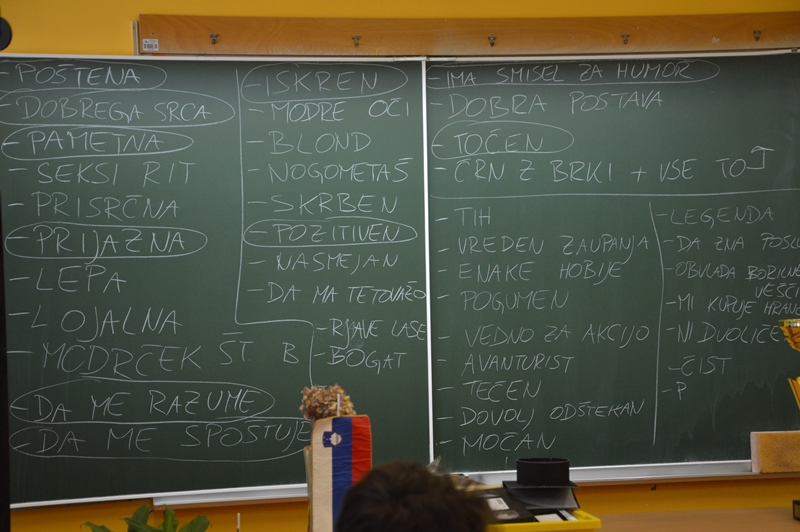 - POŠTENA
- DOBREGA SRCA
- PAMETNA
- SEKSI RIT
- PRISRČNA
- PRIJAZNA
- LEPA
- LOJALNA
- MODRČEK ŠT. B
- DA ME RAZUME
- DA ME SPOŠTUJE
- ISKREN
- MODRE OČI
- BLOND
- NOGOMETAŠ
- SKRBEN
- POZITIVEN
- NASMEJAN
- DA MA TETOVAŽO
- RJAVE LASE
- BOGAT
- IMA SMISEL ZA HUMOR
- DOBRA POSTAVA
- TOČEN
- ČRN Z BRKI + VSE TO
- TIH
- VREDEN ZAUPANJA
- ENAKE HOBIJE
- POGUMEN
- VEDNO ZA AKCIJO
- AVANTURIST
- TEČEN
- DOVOLJ ODŠTEKAN
- MOČAN
- LEGENDA
- DA ZNA POSLU
- OBVLADA BORILNE
VEŠČI
- MI KUPUJE HRANO
- NI DVOLIČE
- ČIST
- P